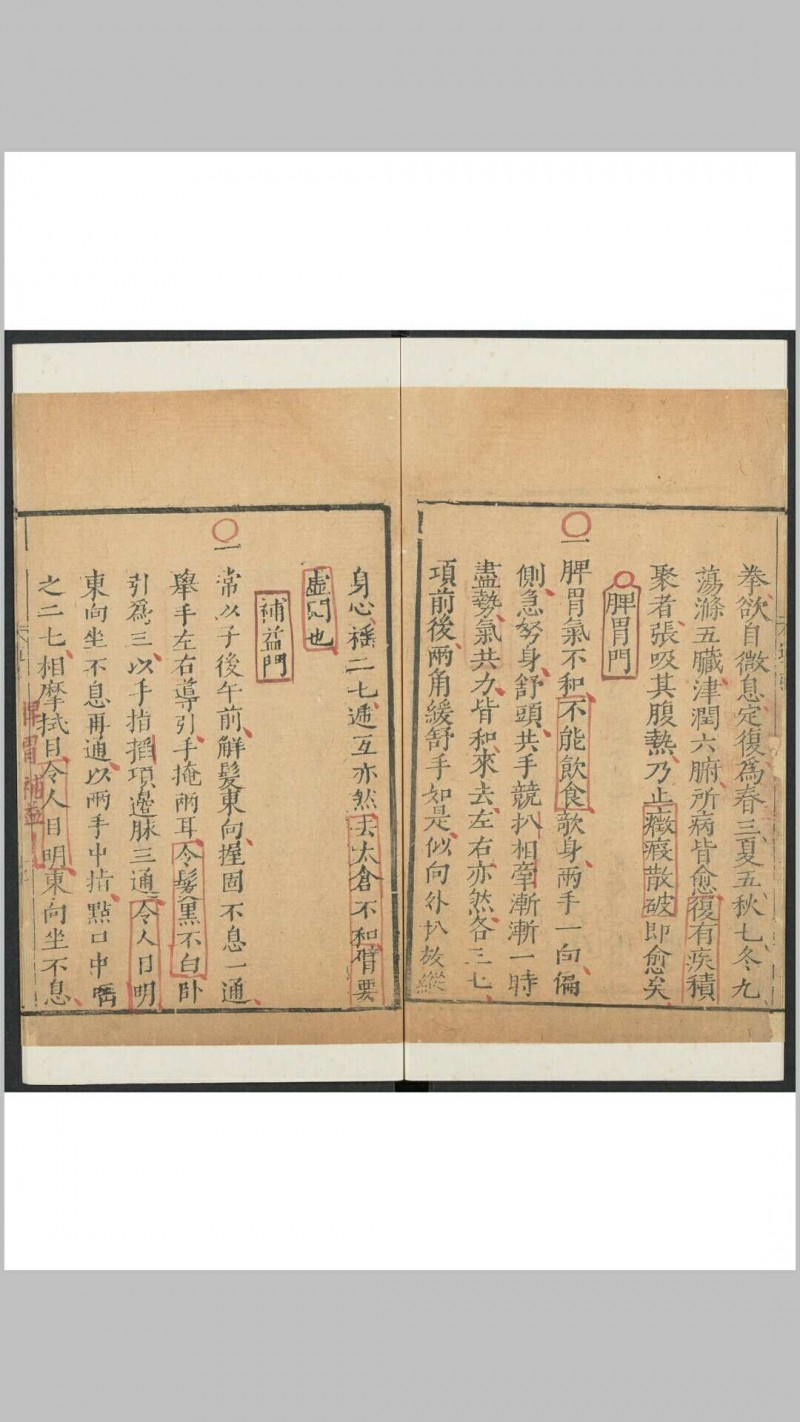 拳欲自微息定復爲春三夏五秋七冬九
蕩滌五臓津潤六腑所病皆愈復有疾積
聚者張吸其腹熱乃止癥瘕散破即愈矣
脾胃門
一脾胃氣不和不能飲食欹身兩手一向偏
側急努身舒頭共手競扒相牽漸漸一時
盡勢氣共力皆和來去左右亦然各三七
項前後兩角緩舒手如是似向外扒放縱
身心揺二七遞互亦然去太倉不和臂要
虛悶也
補益門
一常以子後午前解髮東向握固不息一通
舉手左右導引手掩兩耳令髮黒不白卧
引爲三以手指搯項邊脉三通令人目明
東向坐不息再通以兩手中指點口中唾
之二七相摩拭目令人目明東向坐不息
脾胃 補益